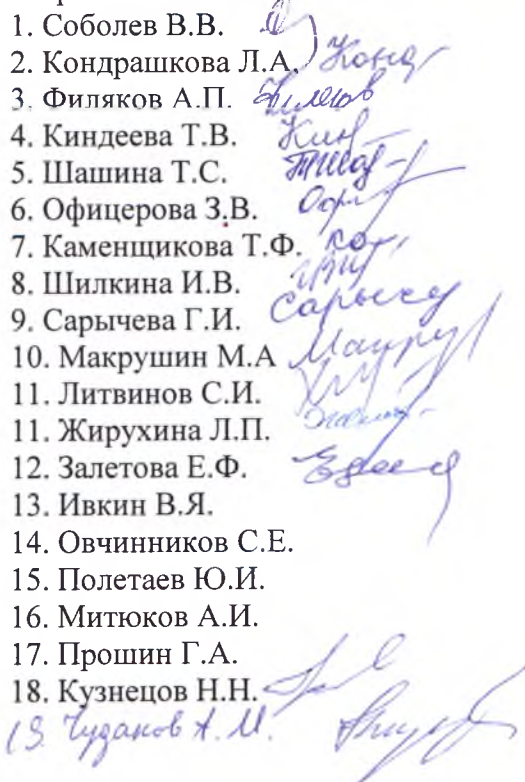 1. Соболев В.В.
2. Кондрашкова Л.А. Конд
3. Филяков А.П. Филяков
4. Киндеева Т.В. Кин
5. Шашина Т.С.
6. Офицерова З.В. Офи
7. Каменщикова Т.Ф.
8. Шилкина И.В.
9. Сарычева Г.И. Сарычев
10. Макрушин М.А
11. Литвинов С.И.
11. Жирухина Л.П.
12. Залетова Е.Ф.
13. Ивкин В.Я.
14. Овчинников С.Е.
15. Полетаев Ю.И.
16. Митюков А.И.
17. Прошин Г.А.
18. Кузнецов Н.Н.
19. Чуданов А.М.